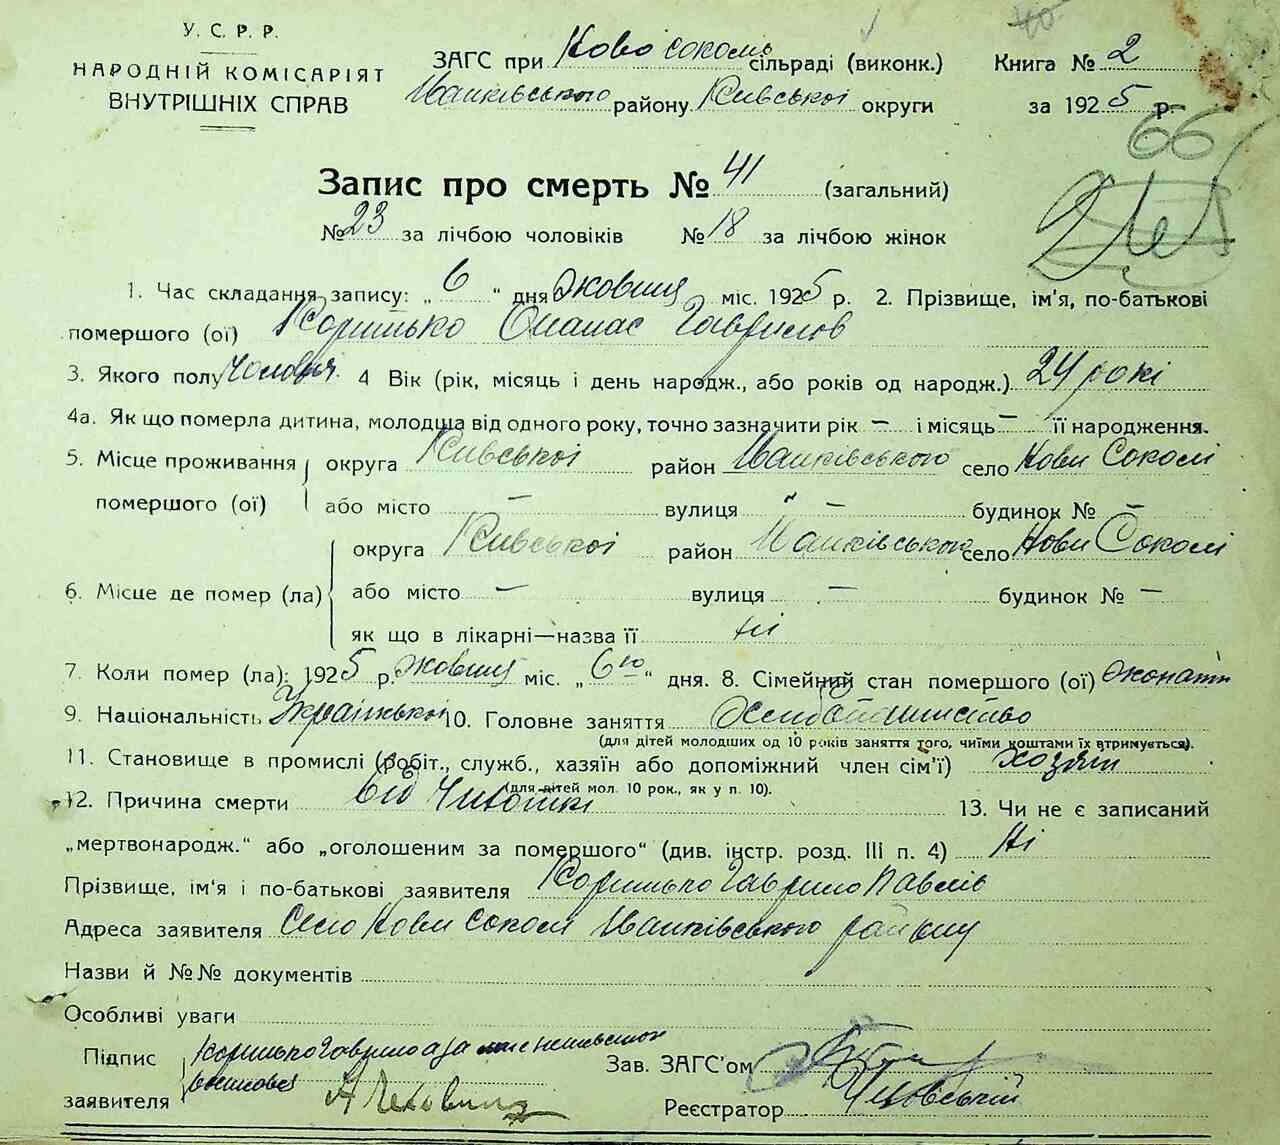 У. С. Р. Р.
НАРОДНІЙ КОМІСАРІЯТ
ВНУТРІШНІХ СПРАВ
ЗАГС при Ново сокол сільраді (виконк.)
Іванківського району Київської округи
Книга № 2
за 1925 р.
66
Запис про смерть № 41 (загальний)
№ 23 за лічбою чоловіків № 18 за лічбою жінок
1. Час складання запису: „ 6 “ дня Жовтня міс. 1925 р. 2. Прізвище, ім'я, по-батькові
помершого (ої) Коринько Опанас Гаврилов
3. Якого полу Чоловіч. 4 Вік (рік, місяць і день народж., або років од народж.) 24 рокі
4а. Як що померла дитина, молодша від одного року, точно зазначити рік — і місяць — її народження.
5. Місце проживання помершого (ої) округа Київської район Іванківського село Нови Соколі
або місто — вулиця — будинок № —
6. Місце де помер (ла) округа Київської район Іванківського село Нови Соколі
або місто — вулиця — будинок № —
як що в лікарні—назва її ні
7. Коли помер (ла): 1925 р. жовтня міс. „ 6го “ дня. 8. Сімейний стан помершого (ої) жонати
9. Національність Української 10. Головне заняття Хліборобство
(для дітей молодших од 10 років заняття того, чиїми коштами їх втримується).
11. Становище в промислі (робіт., служб., хазяїн або допоміжний член сім'ї) хозяїн
(для дітей мол. 10 рок., як у п. 10).
12. Причина смерти від 13. Чи не є записаний
„мертвонародж.“ або „оголошеним за помершого“ (див. інстр. розд. III п. 4) Ні
Прізвище, ім'я і по-батькові заявителя Коринько Гаврило Павлів
Адреса заявителя Село Нови Соколі Іванківського району
Назви й №№ документів
Особливі уваги
Підпис заявителя Коринько Гаврило а за
Зав. ЗАГС'ом
Реєстратор